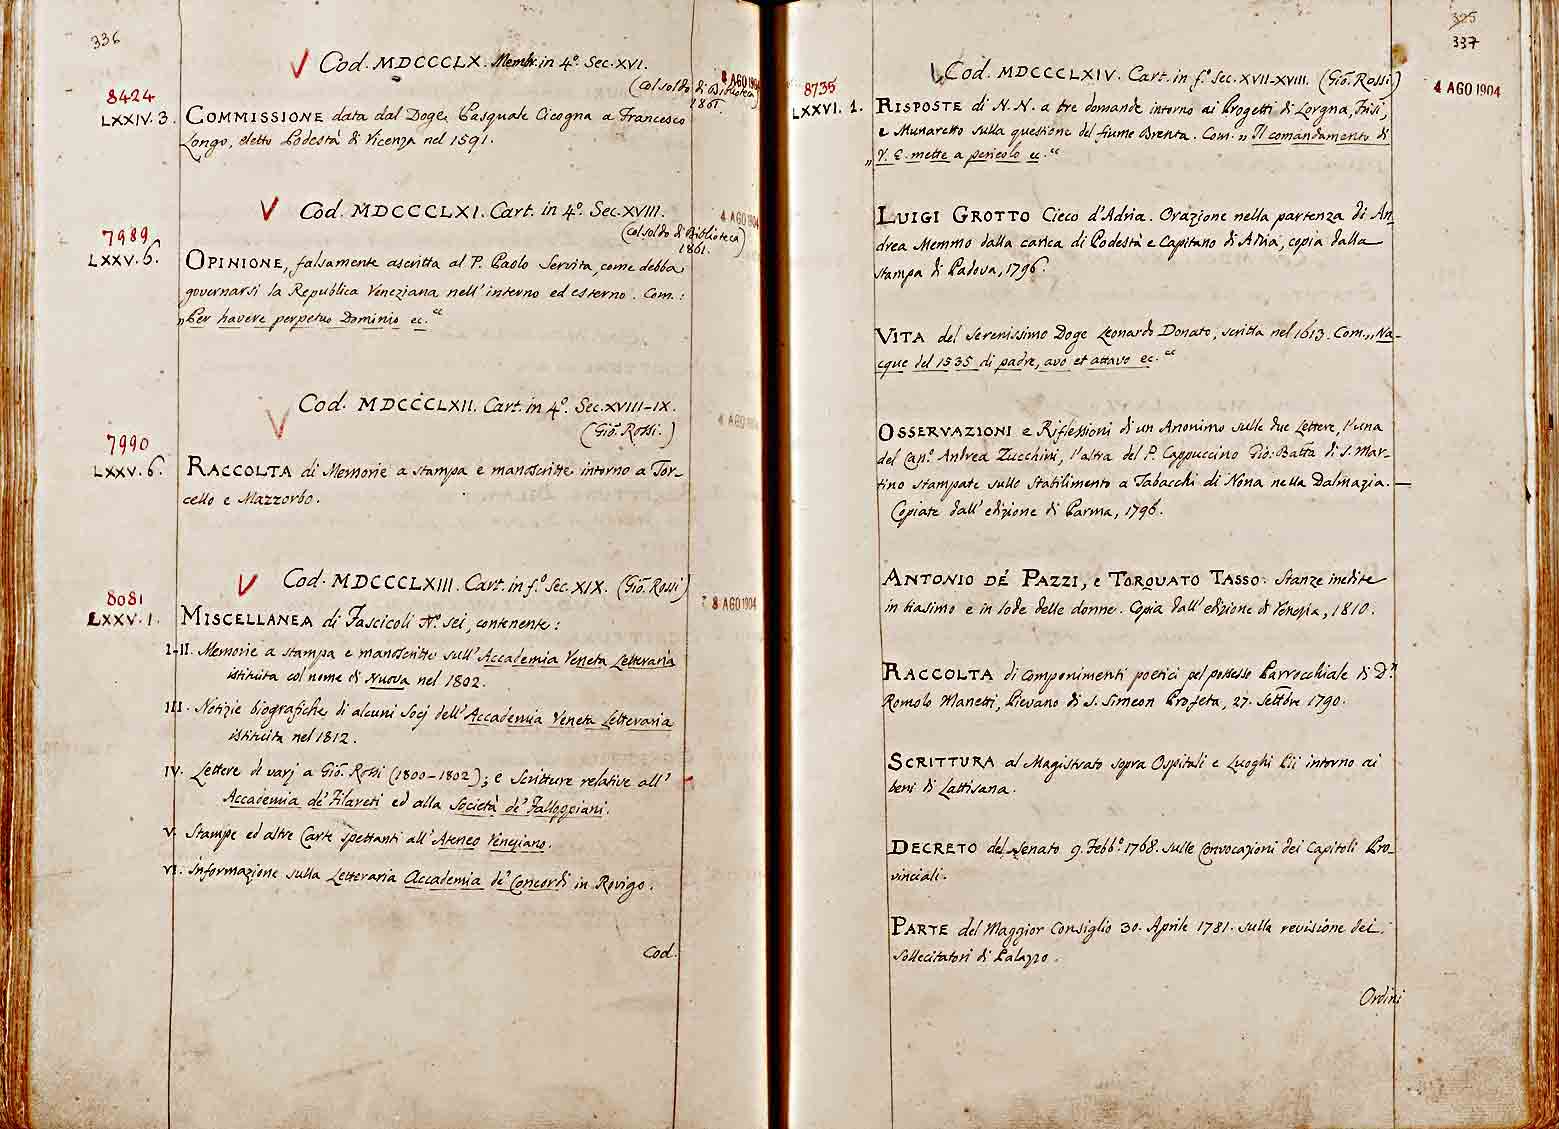 336
V Cod. MDCCCLX. Membr. in 4º. Sec. XVI.
(Col soldo di Biblioteca)
1861.
8 AGO 1904
8424
LXXIV. 3. COMMISSIONE data dal Doge Pasquale Cicogna a Francesco
Longo, eletto Podestà di Vicenza nel 1591.
V Cod. MDCCCLXI. Cart. in 4º. Sec. XVIII.
(Col soldo di Biblioteca)
1861.
4 AGO 1904
7989
LXXV. 6. OPINIONE, falsamente ascritta al P. Paolo Servita, come debba
governarsi la Republica Veneziana nell' interno ed esterno. Com.:
„Per havere perpetuo Dominio ec.“
V Cod. MDCCCLXII. Cart. in 4º. Sec. XVIII-IX.
(Giõ. Rossi.)
4 AGO 1904
7990
LXXV. 6. RACCOLTA di Memorie a stampa e manoscritte intorno a Tor-
cello e Mazzorbo.
V Cod. MDCCCLXIII. Cart. in f.º Sec. XIX. (Giõ. Rossi)
8 AGO 1904
8081
LXXV. 1. MISCELLANEA di Fascicoli Nº. sei, contenente:
I-II. Memorie a stampa e manoscritte sull' Accademia Veneta Letteraria
istituita col nome di Nuova nel 1802.
III. Notizie biografiche di alcuni Socj dell' Accademia Veneta Letteraria
istituita nel 1812.
IV. Lettere di varj a Giõ. Rossi (1800-1802); e Scritture relative all'
Accademia de' Filareti ed alla Società de' Falloppiani.
V. Stampe ed altre Carte spettanti all' Ateneo Veneziano.
VI. Informazione sulla Letteraria Accademia de' Concordi in Rovigo.
Cod.
325
337
V Cod. MDCCCLXIV. Cart. in f.º Sec. XVII-XVIII. (Giõ. Rossi.)
4 AGO 1904
8735
LXXVI. 1. RISPOSTE di N. N. a tre domande intorno ai Progetti di Lorgna, Frisi,
e Munaretto sulla questione del fiume Brenta. Com. „Il comandamento di
„V. E. mette a pericolo ec.“
LUIGI GROTTO Cieco d'Adria. Orazione nella partenza di An-
drea Memmo dalla carica di Podestà e Capitano di Adria, copia dalla
stampa di Padova, 1796.
VITA del Serenissimo Doge Leonardo Donato, scritta nel 1613. Com. „Na-
cque del 1535 di padre, avo et attavo ec.“
OSSERVAZIONI e Riflessioni di un Anonimo sulle due Lettere, l'una
del Can.º Andrea Zucchini, l'altra del P. Cappuccino Gio: Batta di S. Mar-
tino stampate sullo Stabilimento a Tabacchi di Nona nella Dalmazia. —
Copiate dall' edizione di Parma, 1796.
ANTONIO DE' PAZZI, e TORQUATO TASSO. Stanze inedite
in biasimo e in lode delle donne. Copia dall' edizione di Venezia, 1810.
RACCOLTA di componimenti poetici pel possesso Parrocchiale di D.n
Romolo Manetti, Pievano di S. Simeon Profeta, 27. Settbre 1790.
SCRITTURA al Magistrato sopra Ospitali e Luoghi Pii intorno ai
beni di Lattisana.
DECRETO del Senato 9. Febb.º 1768. sulle Convocazioni dei Capitoli Pro-
vinciali.
PARTE del Maggior Consiglio 30. Aprile 1781. sulla revisione dei
Sollecitatori di Palazzo.
Ordini